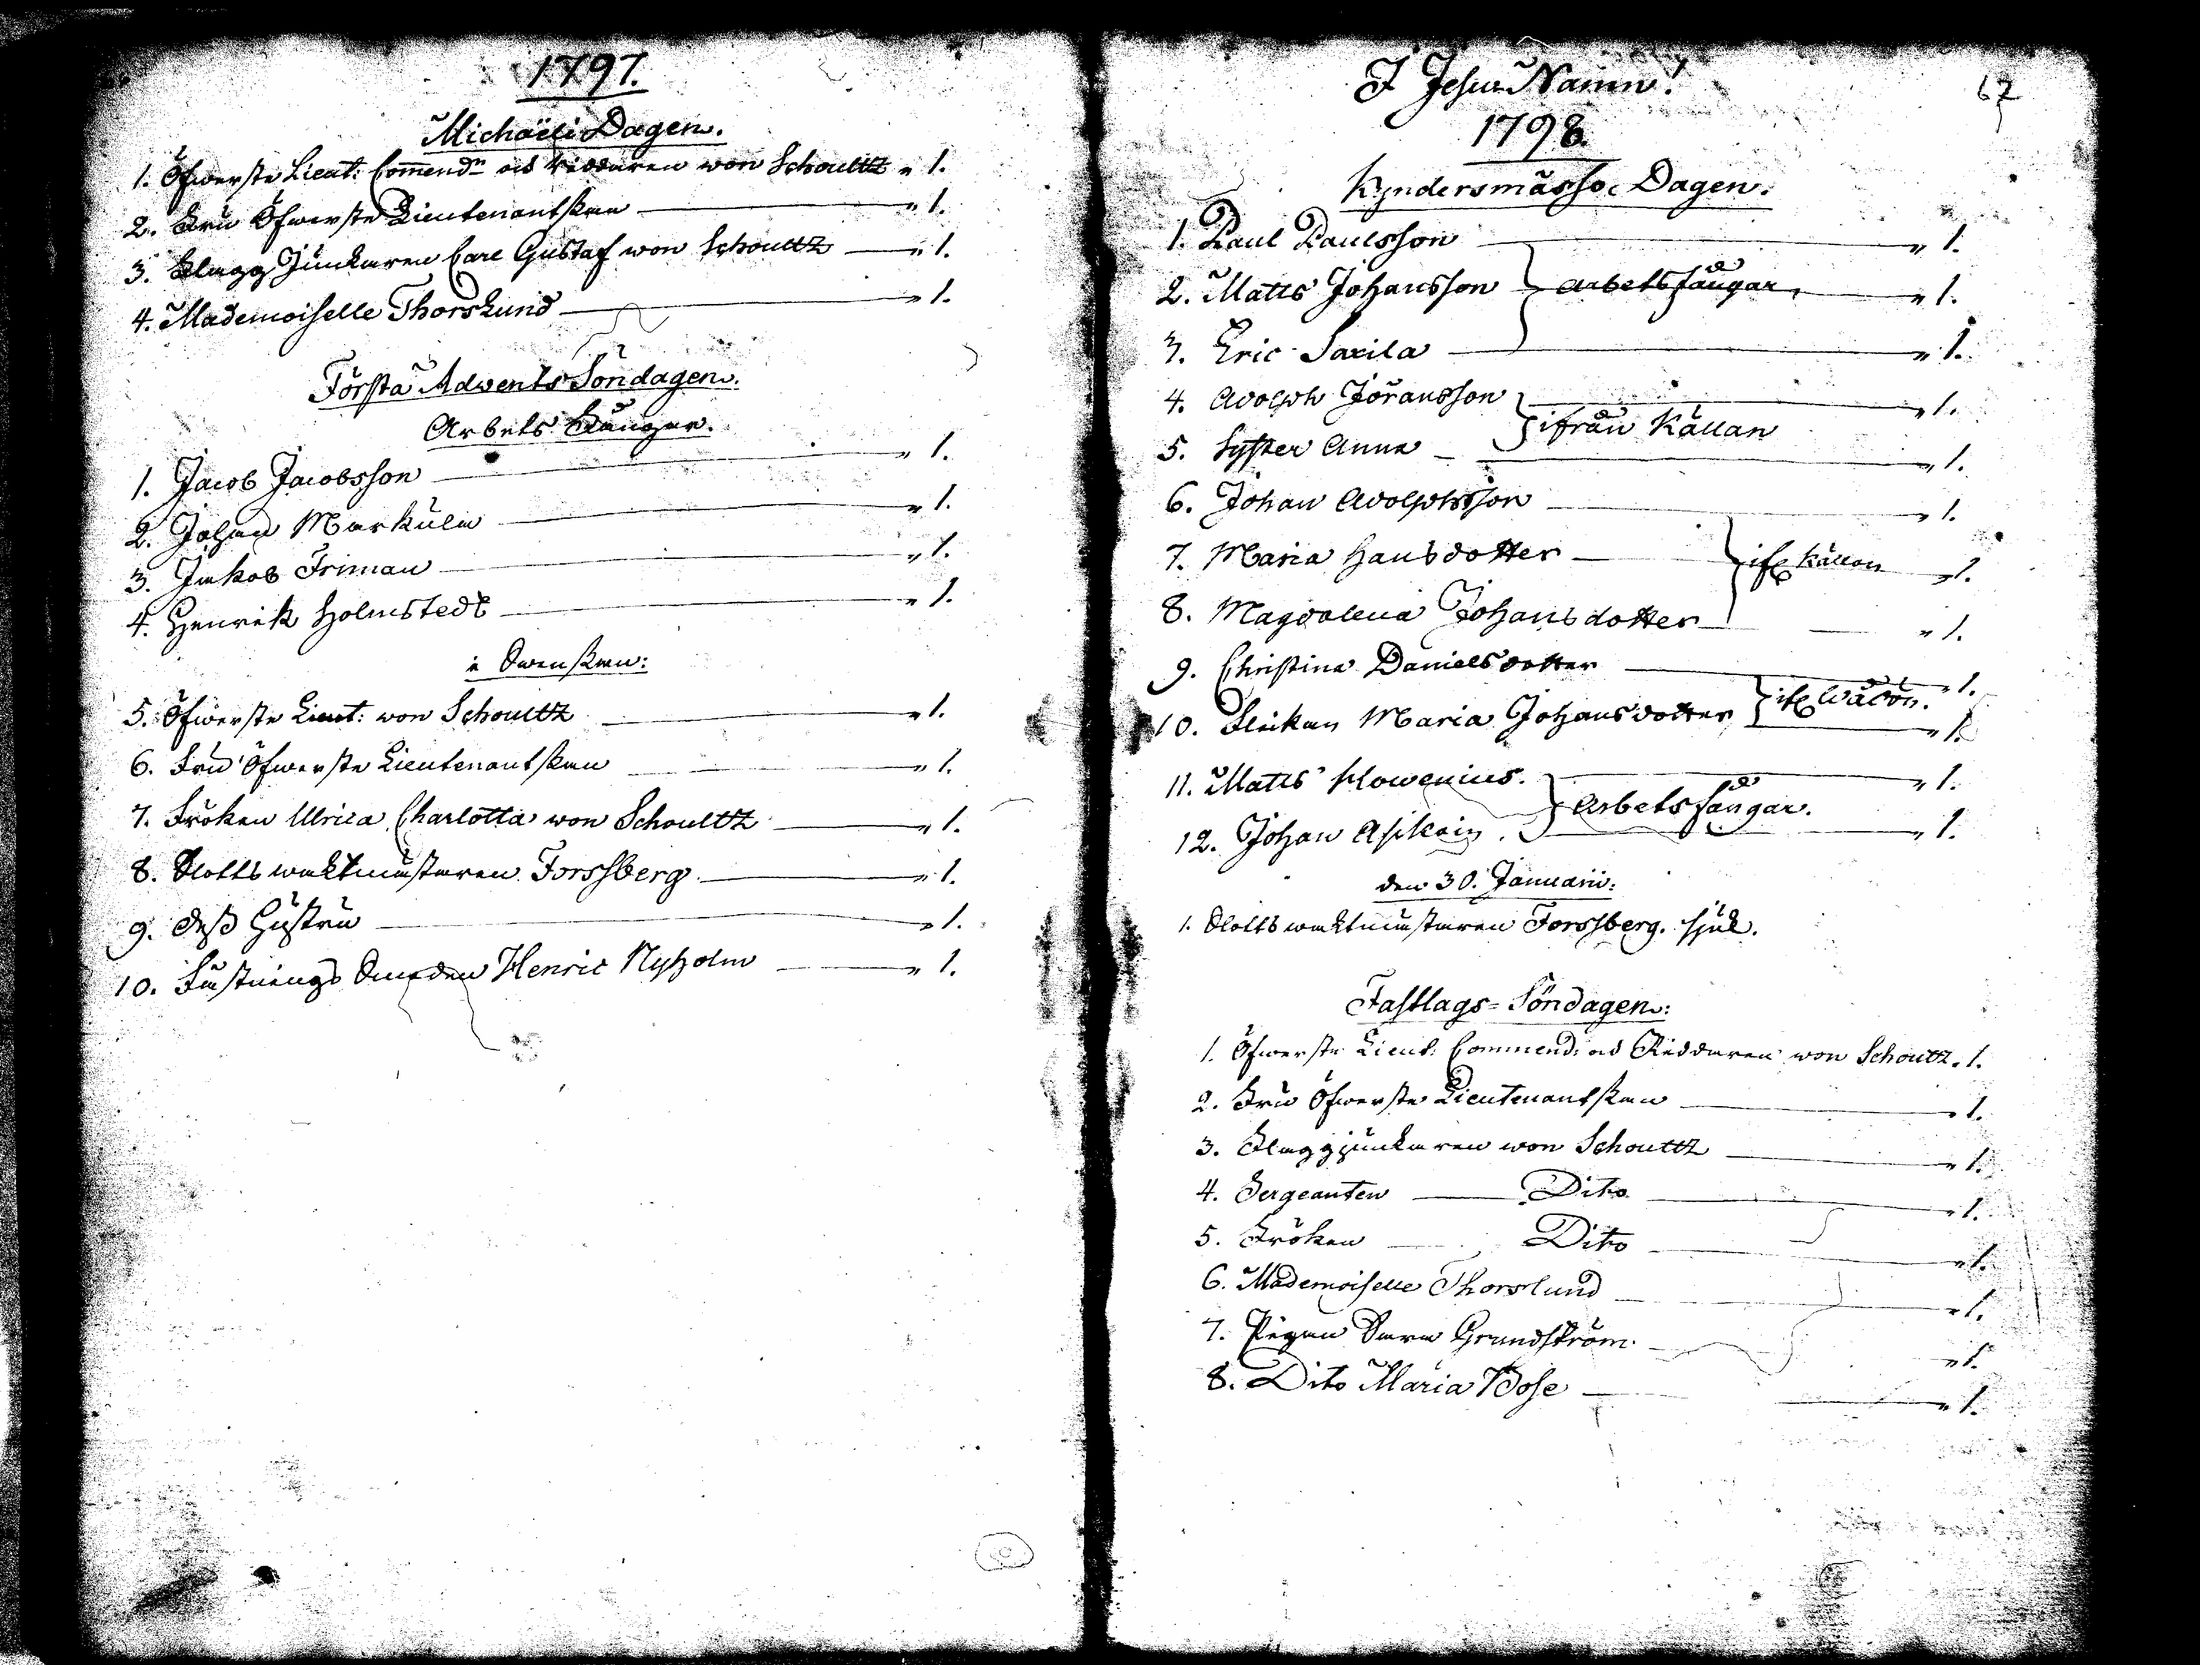 1797.
Michaëli Dagen.
1. Öfwerste Lieut: Commend:n och Riddaren von Schoultz " 1.
2. Fru Öfwerste Lieutenantskan " 1.
3. Flagg Junkaren Carl Gustaf von Schoultz " 1.
4. Mademoiselle Thorslund " 1.
Första Advents Söndagen.
Arbets Fångar.
1. Jacob Jacobsson " 1.
2. Johan Markula " 1.
3. Jakob Friman " 1.
4. Henrik Holmstedt " 1.
i Swenskan:
5. Öfwerste Lieut: von Schoultz " 1.
6. Fru Öfwerste Lieutenantskan " 1.
7. Fröken Ulrica Charlotta von Schoultz " 1.
8. Slotts wacktmästaren Forssberg " 1.
9. Dess Hustru " 1.
10. Fästnings Smeden Henric Nyholm " 1.
I Jesu Namn!
67
1798.
Kyndersmässo Dagen.
1. Paul Paulsson " 1.
2. Matts Johansson } Arbetsfångar, " 1.
3. Eric Saxila " 1.
4. Adolph Jöransson " 1.
} ifrån Källan
5. Syster Anna " 1.
6. Johan Adolphsson " 1.
7. Maria Hansdotter } ifr Källan " 1.
8. Magdalena Johansdotter " 1.
9. Christina Danielsdotter " 1.
10. Flickan Maria Johansdotter } ifr " 1.
11. Matts Klowenius. " 1.
} Arbetsfångar.
12. Johan " 1.
den 30. Januarii:
1. Slotts wacktmästaren Forssberg. sjuk.
Fastlags-Söndagen:
1. Öfwerste Lieut: Commend: och Riddaren von Schoultz " 1.
2. Fru Öfwerste Lieutenantskan " 1.
3. Flaggjunkaren von Schoultz " 1.
4. Sergeanten Dito " 1.
5. Fröken Dito " 1.
6. Mademoiselle Thorslund " 1.
7. Pigan Sara Grundström " 1.
8. Dito Maria Bose " 1.